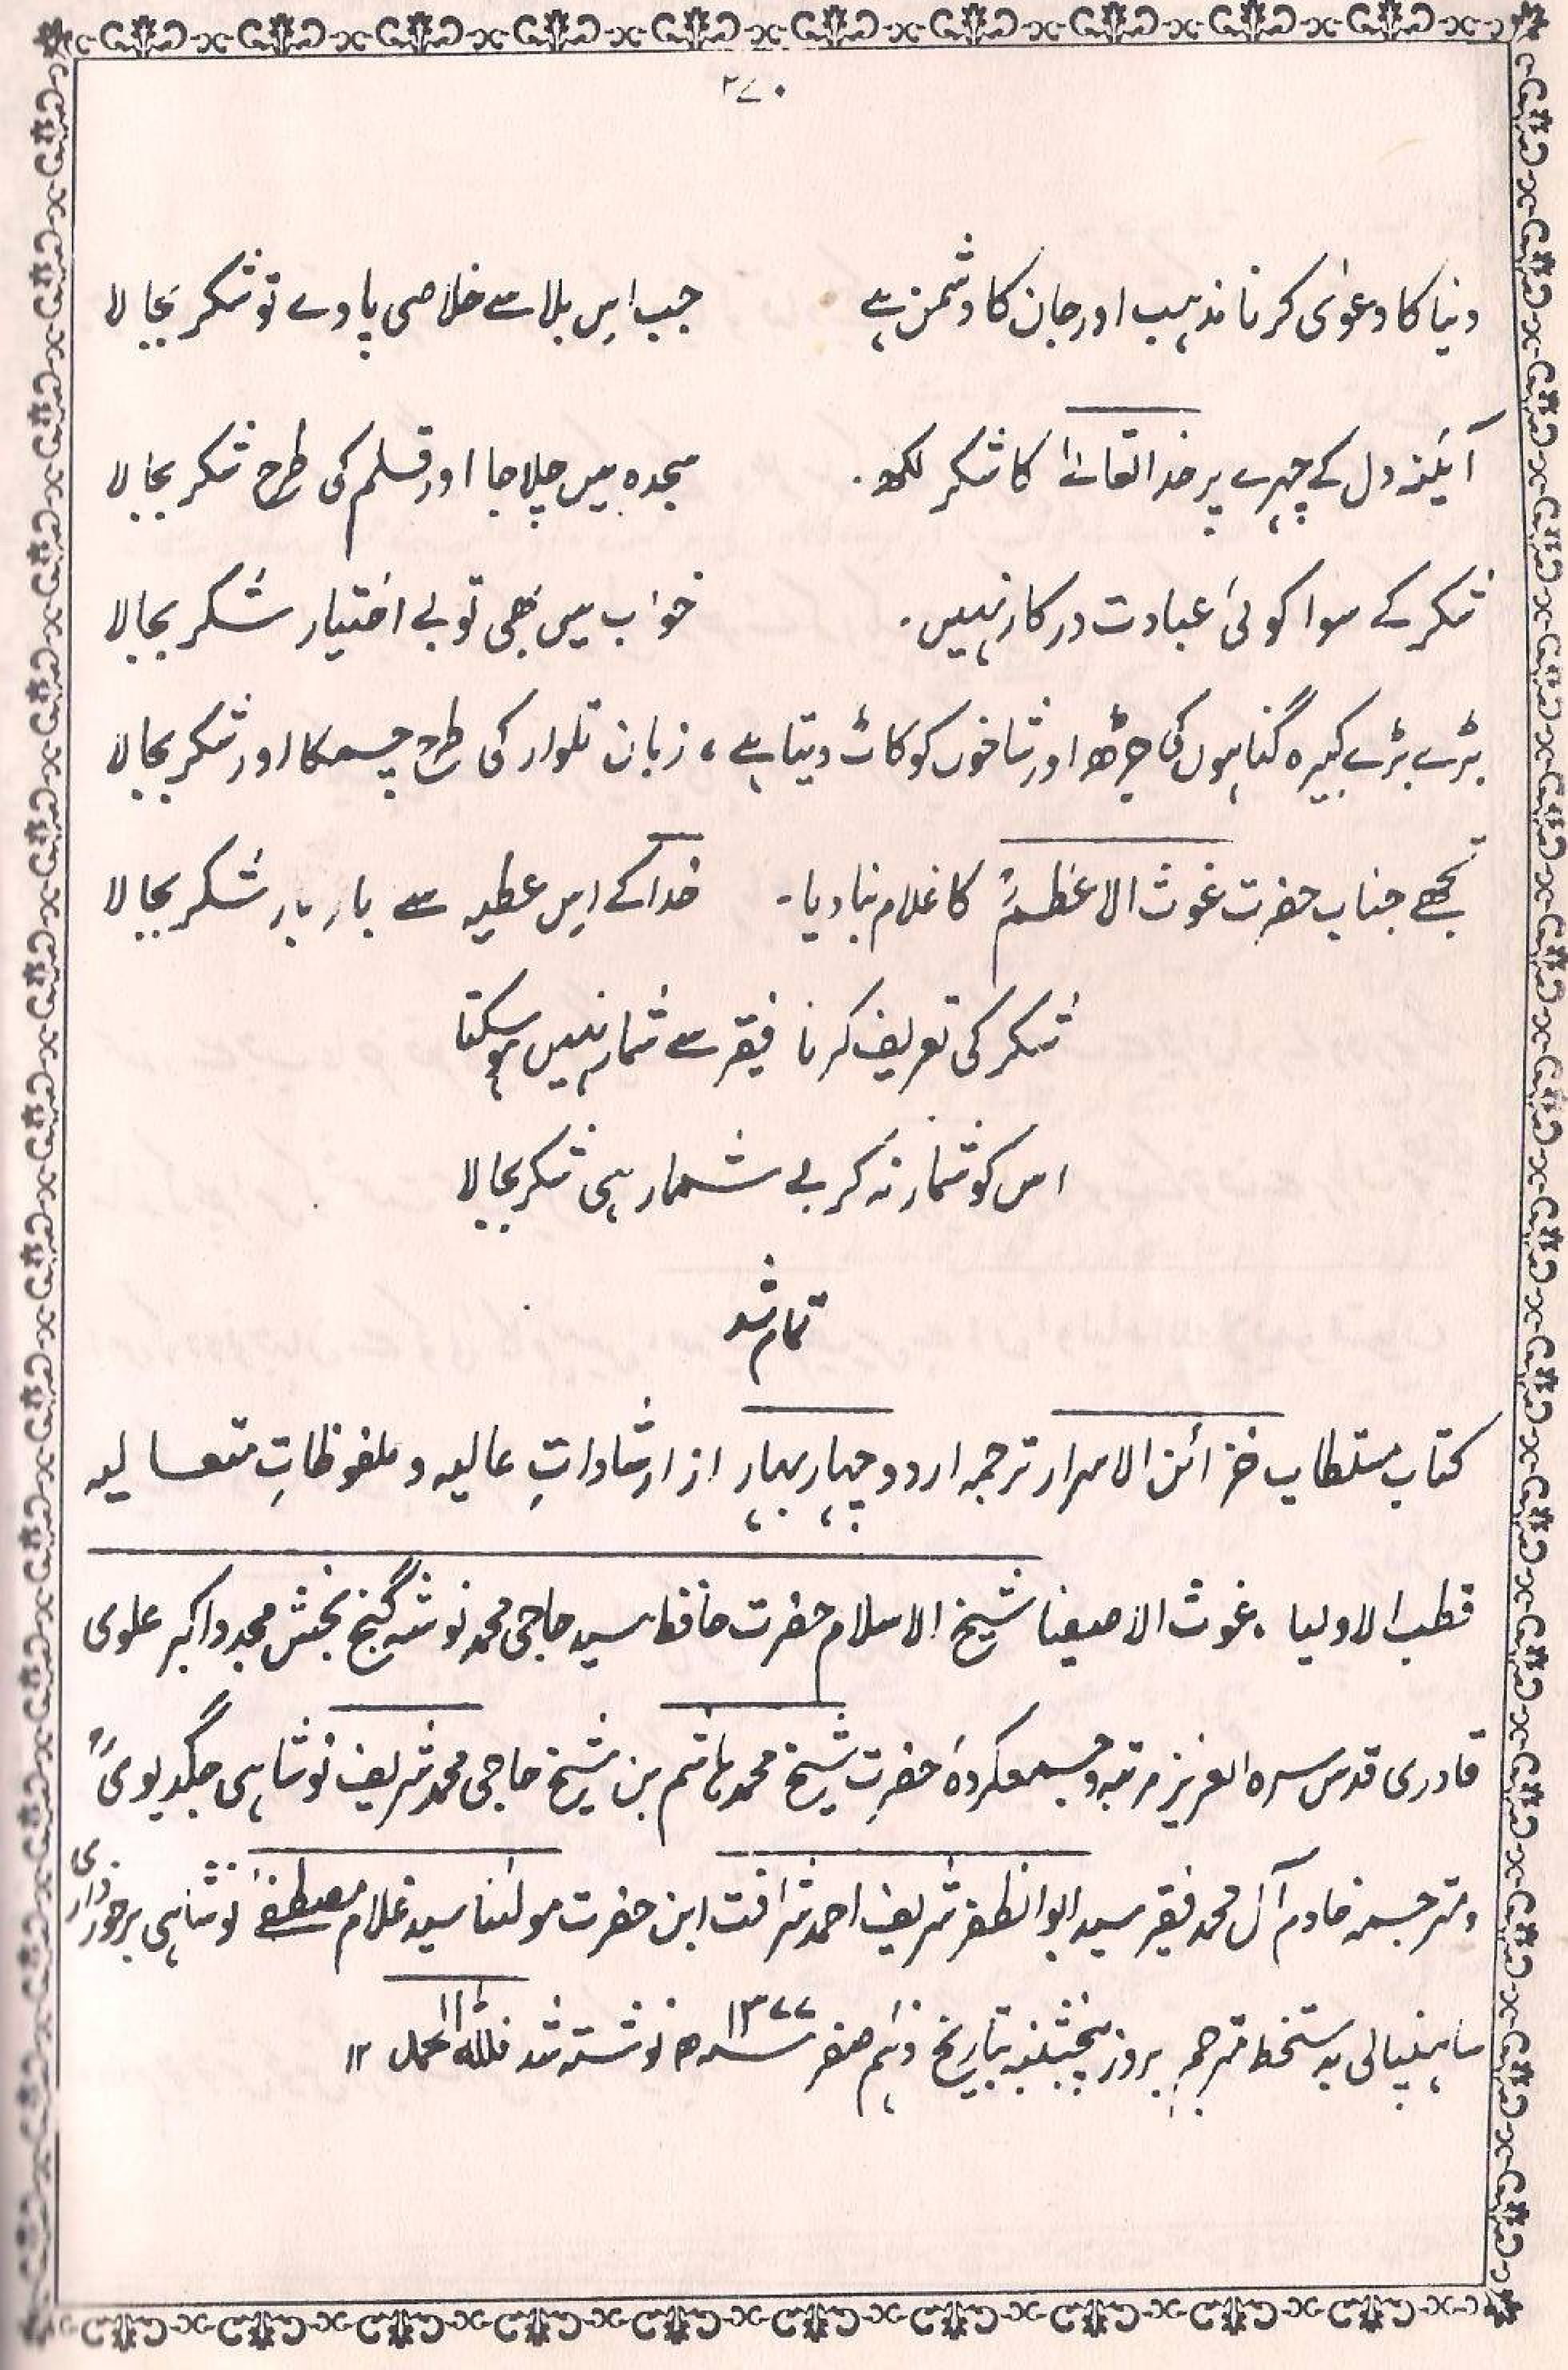 ۲۷۰
دنیا کا دعوٰی کرنا مذہب اور جان کا دشمن ہے جب اس بلا سے خلاصی پاوے تو شکر بجا لا
آئینہ دل کے چہرے پر خدا تعالےٰ کا شکر لکھ۔ سجدہ میں چلا جا اور قلم کی طرح شکر بجا لا
شکر کے سوا کوئی عبادت درکار نہیں۔ خواب میں بھی تو بے اختیار شکر بجا لا
بڑے بڑے کبیرہ گناہوں کی جڑھ اور شاخوں کو کاٹ دیتا ہے، زبان تلوار کی طرح چمکا اور شکر بجا لا
تجھے جناب حضرت غوث الاعظمؓ کا غلام بنا دیا۔ خدا کے اس عطیہ سے بار بار شکر بجا لا
شکر کی تعریف کرنا فقیر سے شمار نہیں ہو سکتا
اس کو شمار نہ کر بے شمار ہی شکر بجا لا
تمام شد
کتاب مستطاب خزائن الاسرار ترجمہ اردو چہار بہار از ارشاداتِ عالیہ و ملفوظاتِ متعالیہ
قطب الاولیاء غوث الاصفیا شیخ الاسلام حضرت حافظ سید حاجی محمد نوشہ گنج بخش مجدد اکبر علوی
قادری قدس سرہ العزیز مرتبہ و جمع کردہ حضرت شیخ محمد ہاشم بن شیخ حاجی محمد شریف نوشاہی جگدیویؒ
و مترجمہ خادم آل محمد فقیر سید ابوالظفر شریف احمد شرافت ابن حضرت مولٰنا سید غلام مصطفےٰ نوشاہی برخورداری
ساہنپالی بدستخط مترجم بروز پنجشنبہ بتاریخ دہم صفر ۱۳۷۷ھ نوشتہ شد فللہ الحمد ۱۲